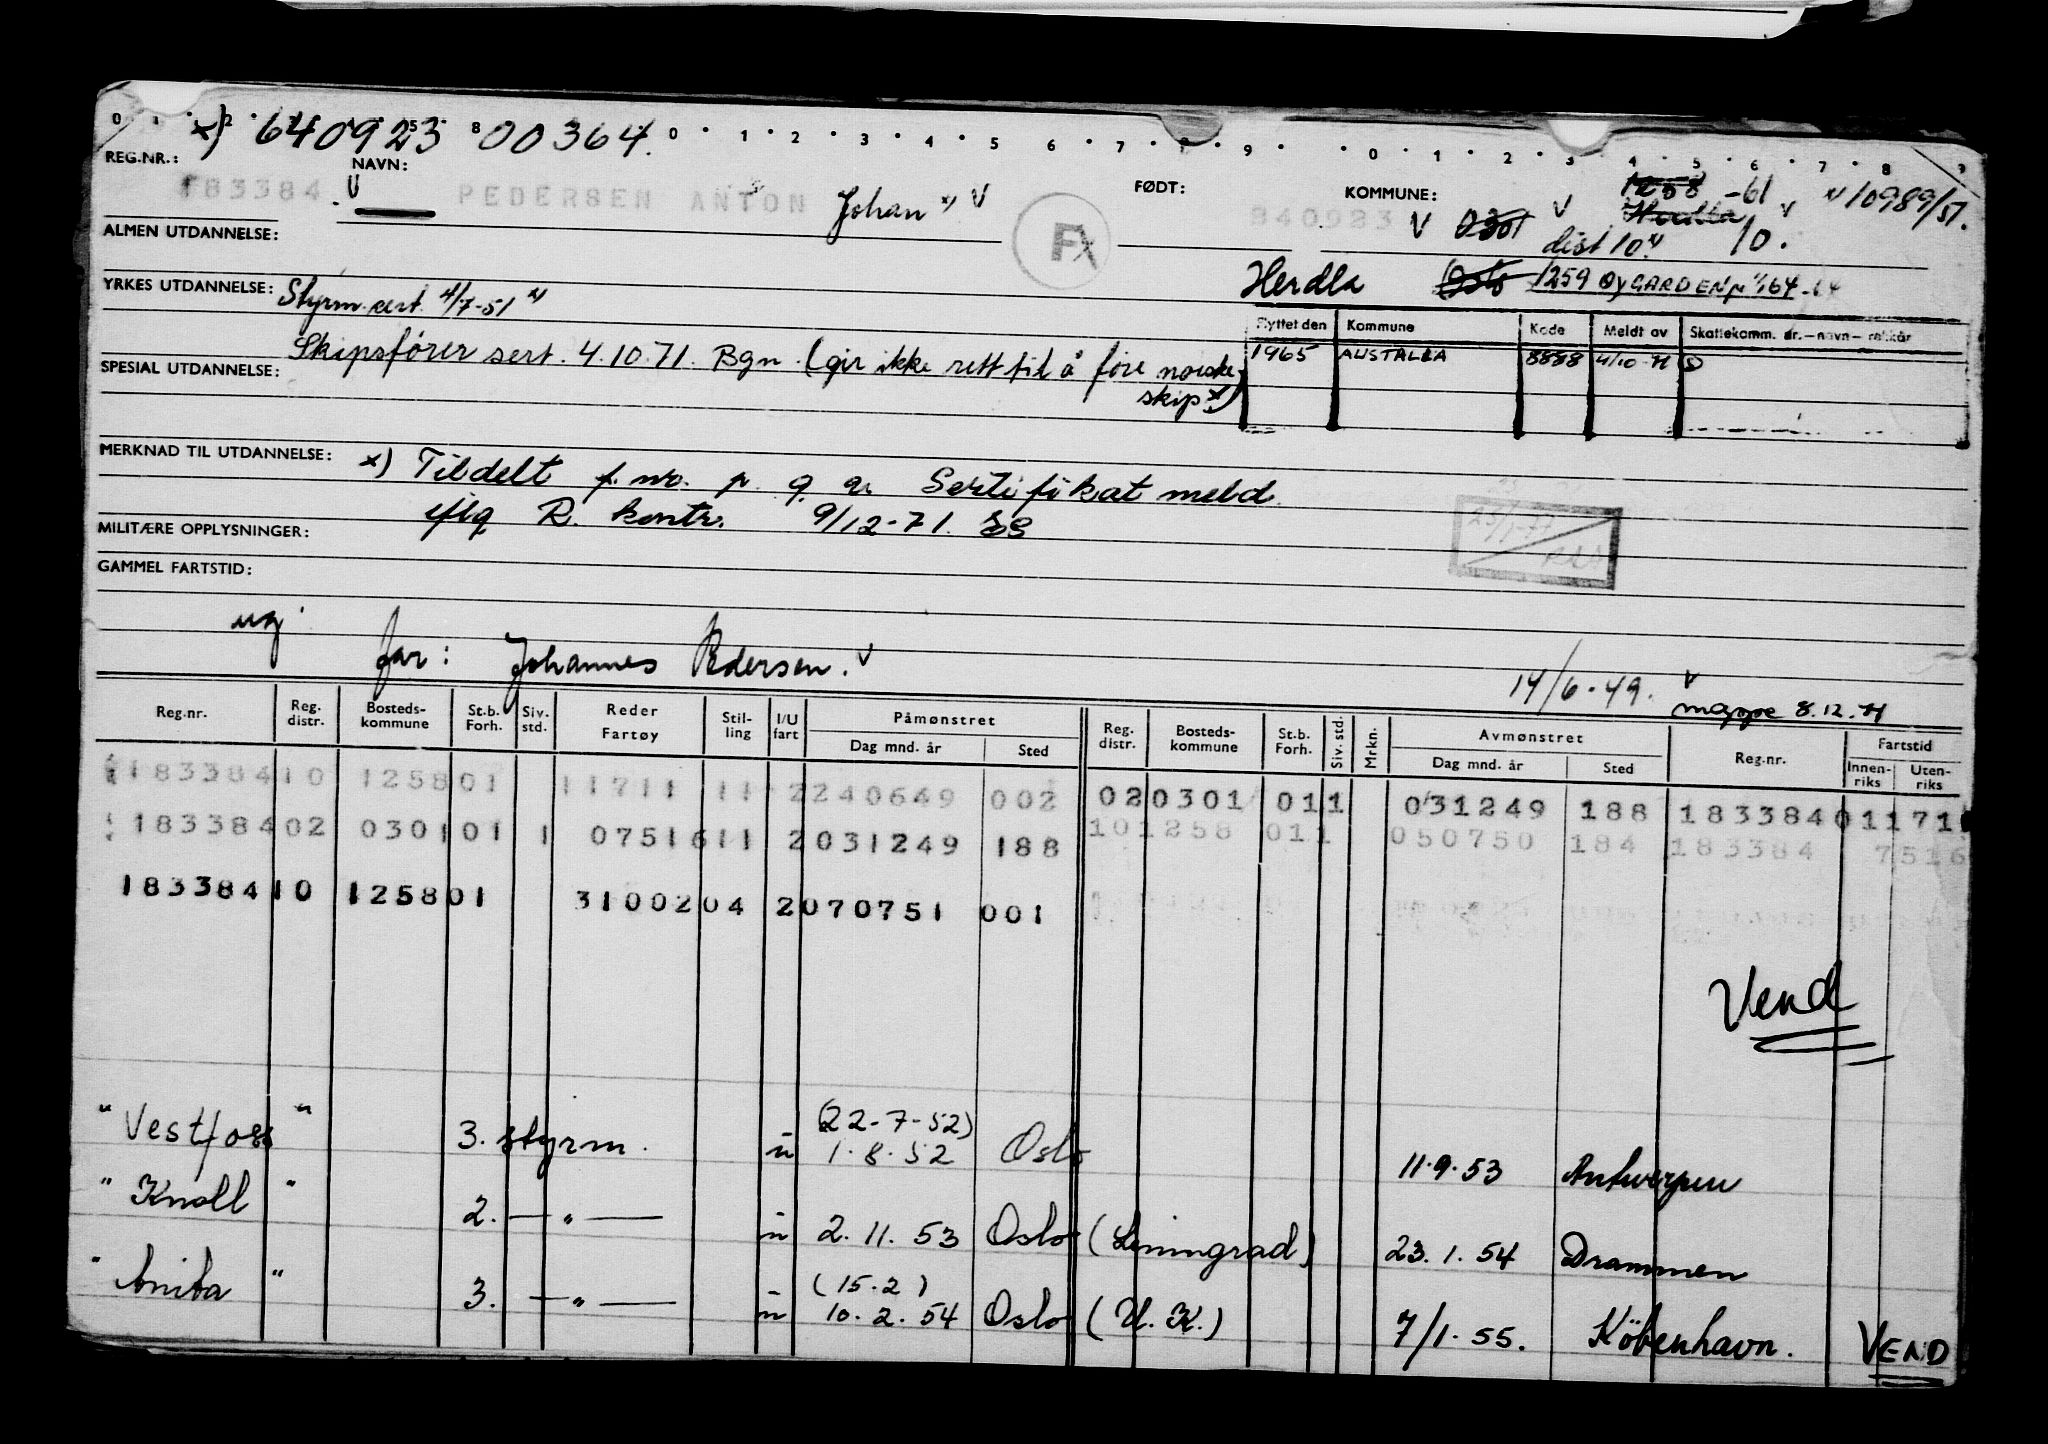 0 1 2 x) 640923 00364. 0 1 2 3 4 5 6 7 8 9 0 1 2 3 4 5 6 7 8 9
REG.NR.: NAVN: FØDT: KOMMUNE:
183384. V PEDERSEN ANTON Johan x) V 840923 V 0301 V 1258 -61 Herdla V x) 10989/51.
dist 10. x) 10.
ALMEN UTDANNELSE: F
Herdla Oslo 1259 ØYGARDEN 1/1 64
YRKES UTDANNELSE: Styrm. sert. 4/7-51 x)
Flyttet den Kommune Kode Meldt av Skattekomm. år.—navn—
Skipsfører sert. 4.10.71. Bgn. (gir ikke rett til å føre norske skip x)
1965 AUSTALIA 8888 4/10-71
SPESIAL UTDANNELSE:
MERKNAD TIL UTDANNELSE: x) Tildelt f.nr. p. g. a. Sertifikat meld.
iflg R. kontr. 9/12-71.
MILITÆRE OPPLYSNINGER:
GAMMEL FARTSTID:
ug far: Johannes Pedersen. V
14/6-49. V mappe 8.12.71
Reg.nr. Reg. distr. Bosteds-kommune St.b. Forh. Siv. std. Reder Fartøy Stil-ling I/U fart Påmønstret Dag mnd. år Sted Reg. distr. Bosteds-kommune St.b. Forh. Siv. std. Mrkn. Avmønstret Dag mnd. år Sted Reg.nr. Fartstid Innen-riks Uten-riks
183384 10 1258 01 11711 11 2 240649 002 02 0301 01 1 031249 188 183384 01171
183384 02 0301 01 1 07516 11 2 031249 188 10 1258 01 1 050750 184 183384 7516
183384 10 1258 01 31002 04 2 070751 001
Vend
"Vestfoss" 3. styrm. u (22-7-52) 1.8.52 Oslo 11.9.53 Antwerpen
"Knoll" 2. — " — u 2.11.53 Oslo (Leningrad) 23.1.54 Drammen
"Anita" 3. — " — u (15.2) 10.2.54 Oslo (U.K.) 7/1.55. København. VEND